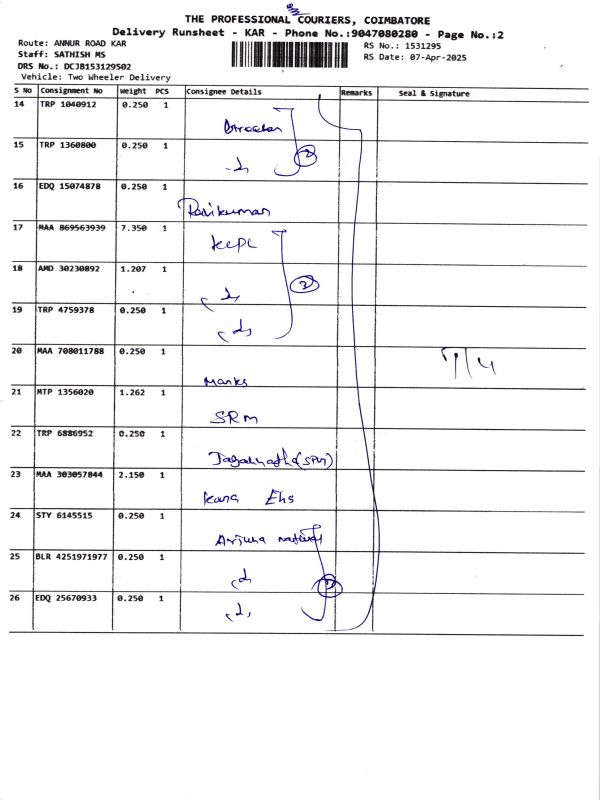 THE PROFESSIONAL COURIERS, COIMBATORE
Delivery Runsheet - KAR - Phone No.:9047080280 - Page No.:2
Route: ANNUR ROAD KAR
Staff: SATHISH MS
DRS No.: DCJB153129502
Vehicle: Two Wheeler Delivery
RS No.: 1531295
RS Date: 07-Apr-2025
S No Consignment No Weight PCS Consignee Details Remarks Seal & Signature
14 TRP 1040912 0.250 1
15 TRP 1360800 0.250 1
16 EDQ 15074878 0.250 1
Ravikumar
17 MAA 869563939 7.350 1
KCPL
18 AMD 30230892 1.207 1
19 TRP 4759378 0.250 1
20 MAA 708011788 0.250 1
7/4
Manks
21 MTP 1356020 1.262 1
SRM
22 TRP 6886952 0.250 1
23 MAA 303057844 2.150 1
24 STY 6145515 0.250 1
Arjuna natural
25 BLR 4251971977 0.250 1
26 EDQ 25670933 0.250 1